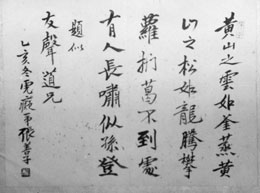 黃山之雲如釜蒸黃
山之松如龍騰攀
蘿捫葛不到處
有人長嘯似孫登
題似
友聲道兄
乙亥冬虎癡弟張善子